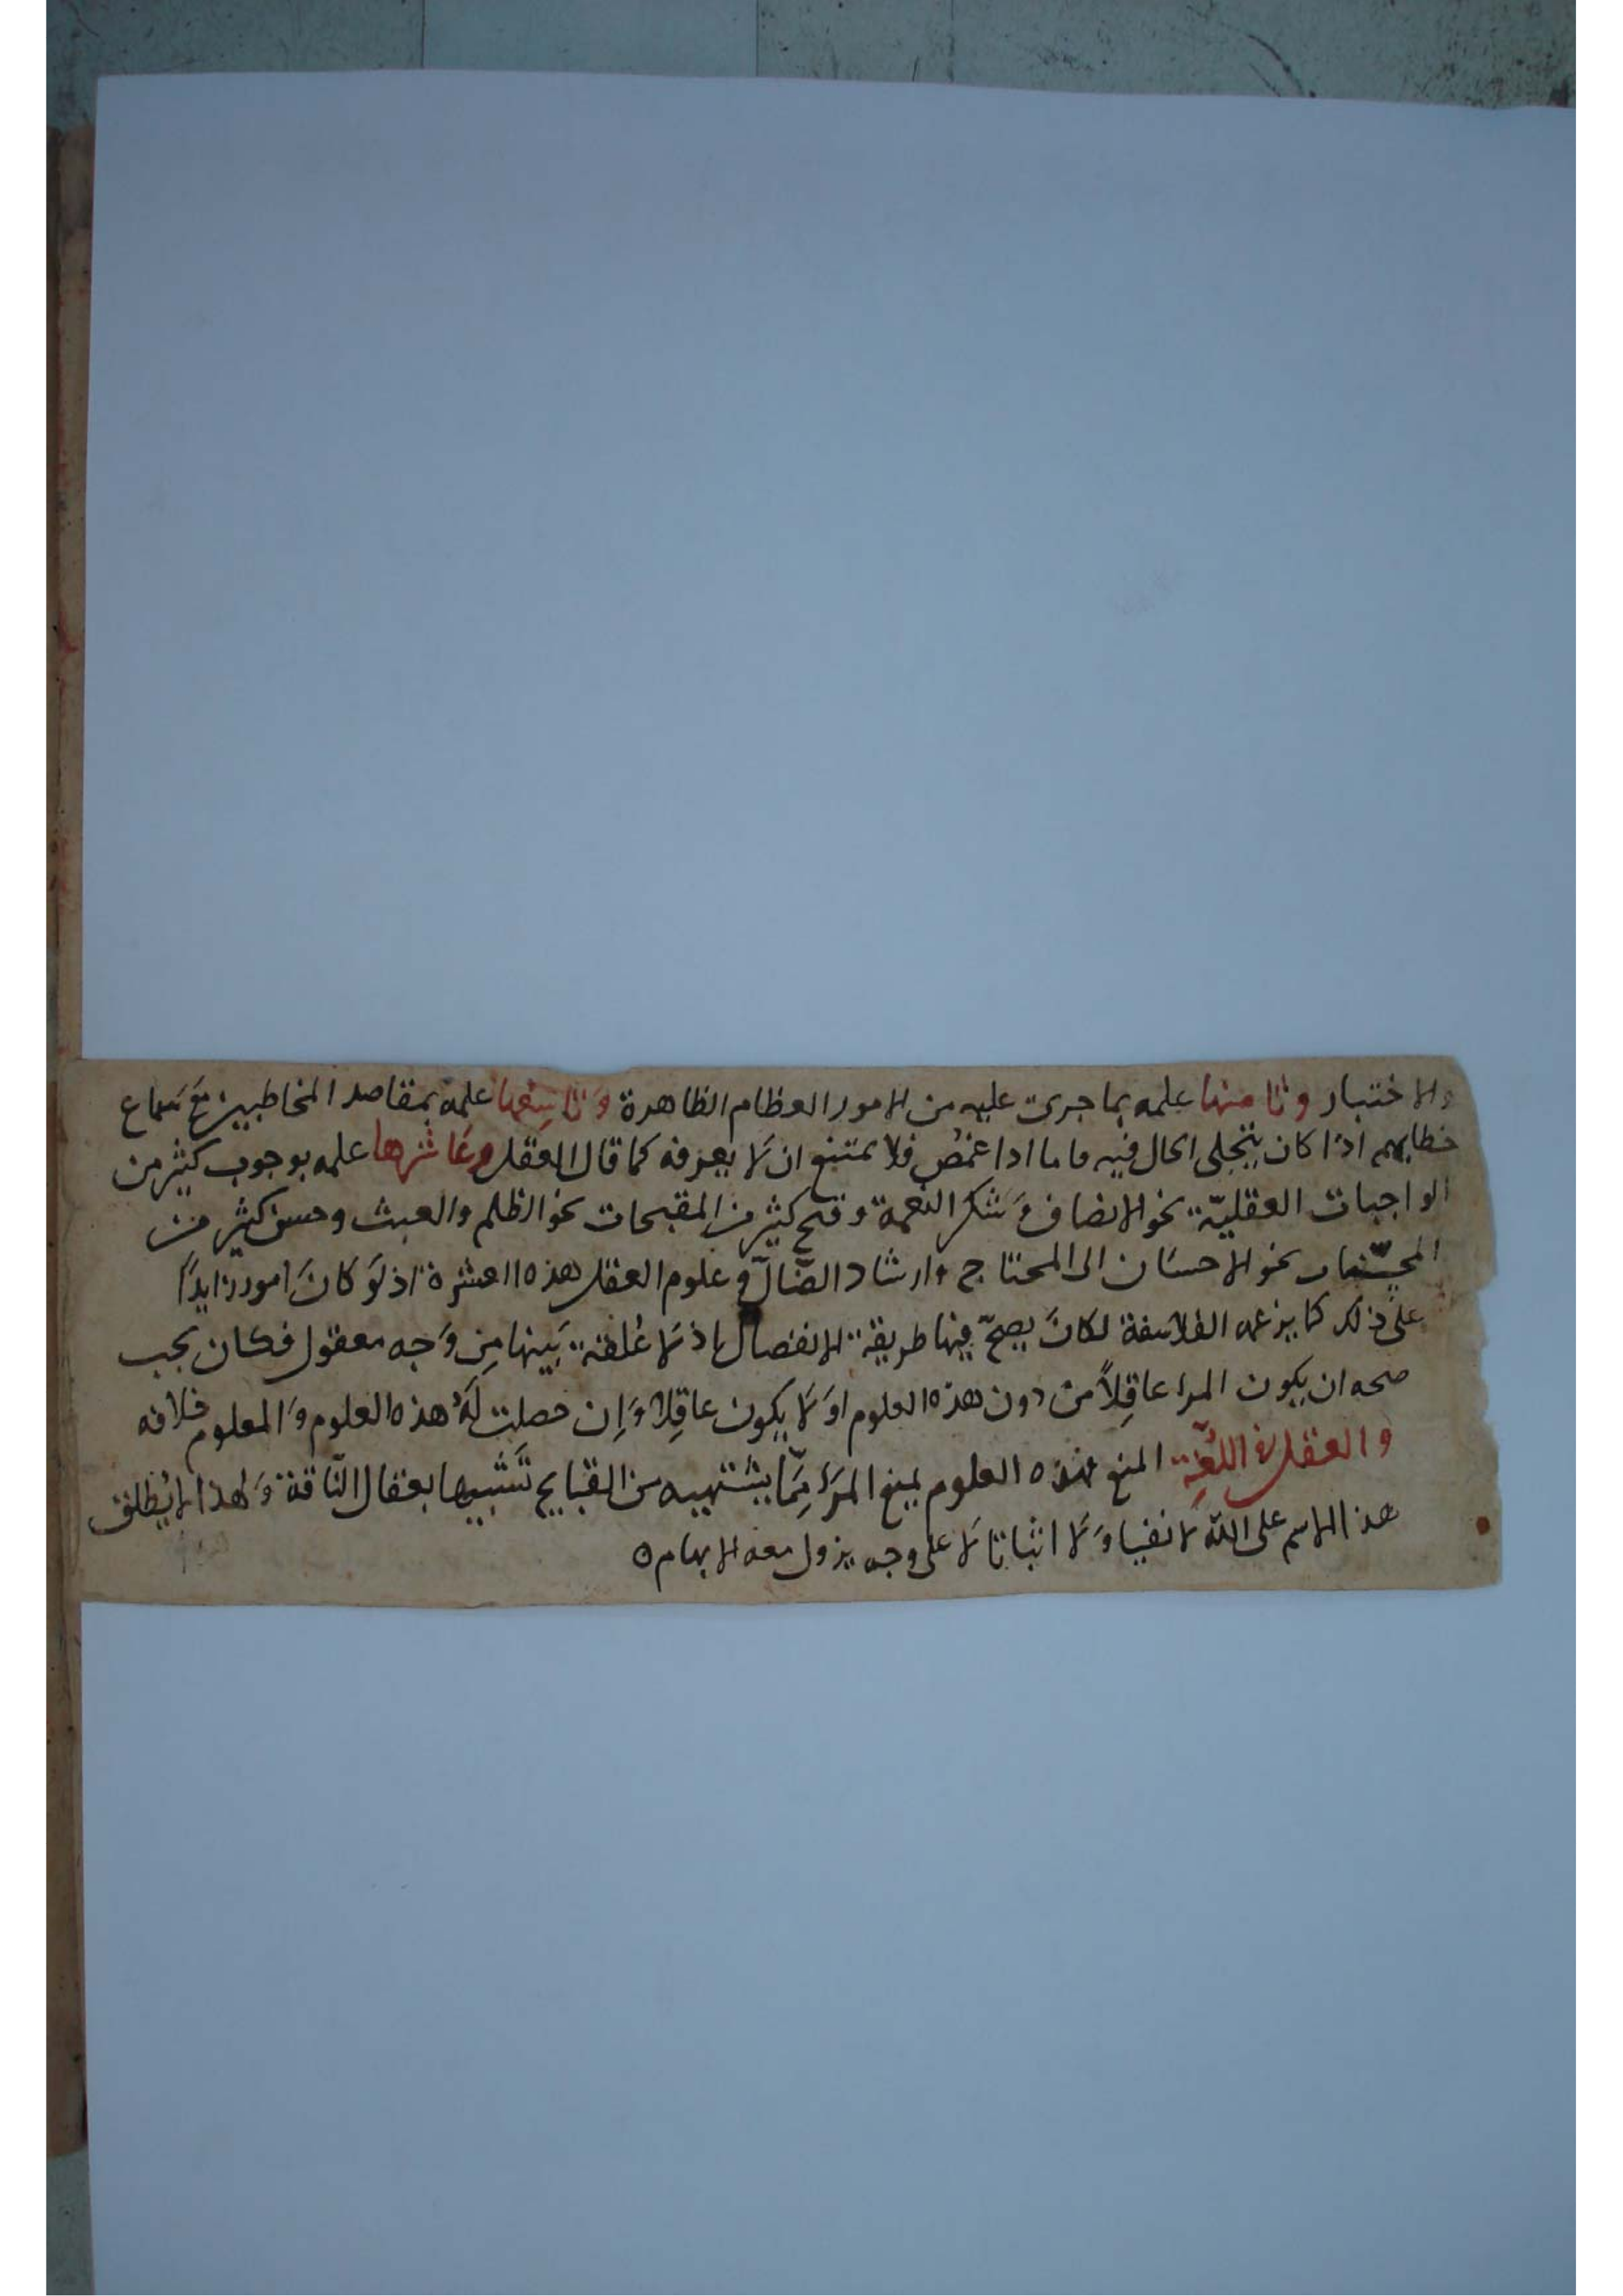 والاختبار وثامنها علمه بما جرى عليه من الامور العظام الظاهرة وَتاسِعُها علمه بمقاصد المخاطبين مَعَ سَماع
خطابهم اذا كان يتجلى الحال فيه فاما اذا غمض فلا يمتنع ان لا يعرفه كما قال العقل وعَاشرها علمه بوجوب كثير من
الواجبات العقليّة نحو الانصاف وَشكر النعمة وقبح كثير من المقبحات نحو الظلم والعبث وحسن كثير من
المحسّنات نحو الاحسَان الى المحتاج وارشاد الضّالّ وعلوم العقل هذه العشرة اذ لَو كانَ امور زايداً
على ذلك كما يزعمه الفلاسفة لكانَ يصحّ فيها طريقة الانفصال اذ لا عُلقة بَينها مِن وَجه معقول فكان يجب
صحه ان يكون المرا عاقِلاً من دون هذه العلوم او لا يكون عاقِلا وَاِن حصلت لَهُ هذه العلوم وَالمعلوم خلافه
والعقل في اللُّغَةِ المنع هذه العلوم يمنع المرَء مِمَّا يشتهيه من القبايح تَشبيها بعقال النّاقة وَلهذا لا يُطلق
هذا الاسم على الله لا نفيا وَلا اثباتا لا على وجه يزول معه الايهام ه